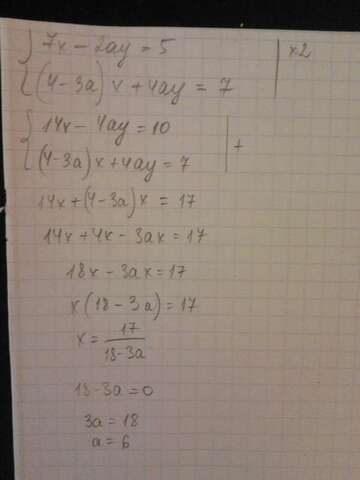 7x - 2ay = 5 | x2
(4-3a)x + 4ay = 7
14x - 4ay = 10
(4-3a)x + 4ay = 7 | +
14x + (4-3a)x = 17
14x + 4x - 3ax = 17
18x - 3ax = 17
x(18-3a) = 17
x = 17/(18-3a)
18-3a = 0
3a = 18
a = 6